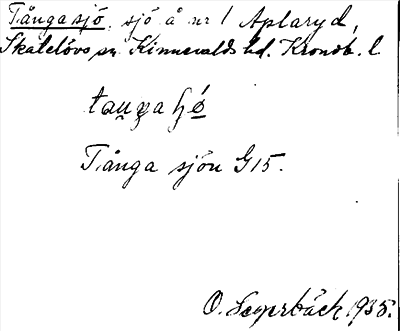 Tångasjö, sjö å nr 1 Aplaryd,
Skatelövs sn. Kinnevalds hd. Kronob. l
Tånga sjön G15.
O. Segerbäck 1935.